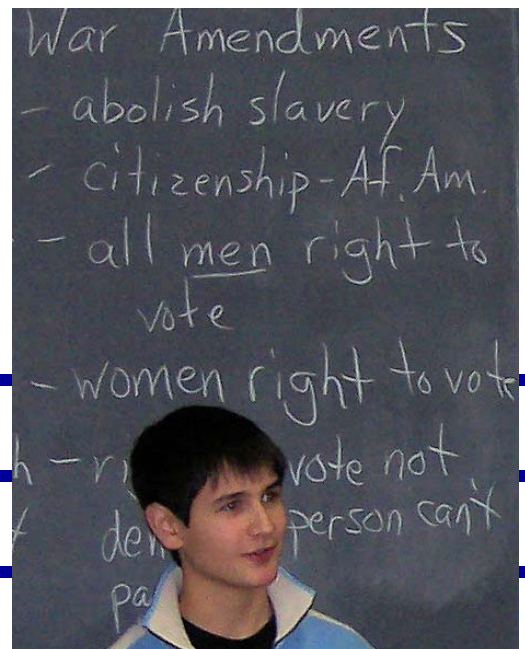 War Amendments
- abolish slavery
- citizenship - Af. Am.
- all men right to
vote
- women right to vote
- vote not
person can't